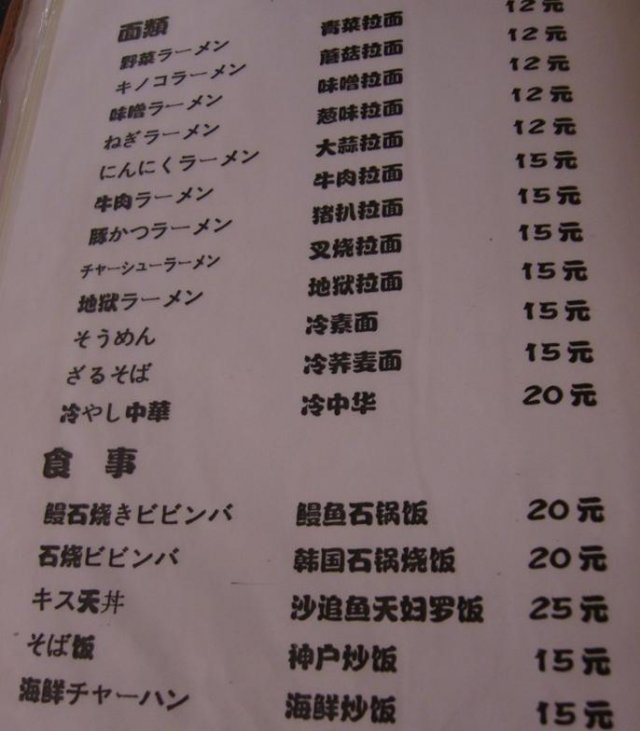 面類
野菜ラーメン 青菜拉面 12元
キノコラーメン 蘑菇拉面 12元
味噌ラーメン 味噌拉面 12元
ねぎラーメン 葱味拉面 12元
にんにくラーメン 大蒜拉面 12元
牛肉ラーメン 牛肉拉面 15元
豚かつラーメン 猪扒拉面 15元
チャーシューラーメン 叉烧拉面 15元
地獄ラーメン 地狱拉面 15元
そうめん 冷素面 15元
ざるそば 冷荞麦面 15元
冷やし中華 冷中华 20元
食 事
鰻石焼きビビンバ 鳗鱼石锅饭 20元
石焼ビビンバ 韩国石锅烧饭 20元
キス天丼 沙追鱼天妇罗饭 25元
そば饭 神户炒饭 15元
海鮮チャーハン 海鲜炒饭 15元